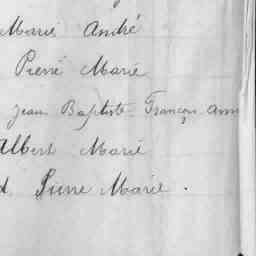 Marie André
Pierre Marie
Jean Baptiste François Ann
Albert Marie
d Pierre Marie.